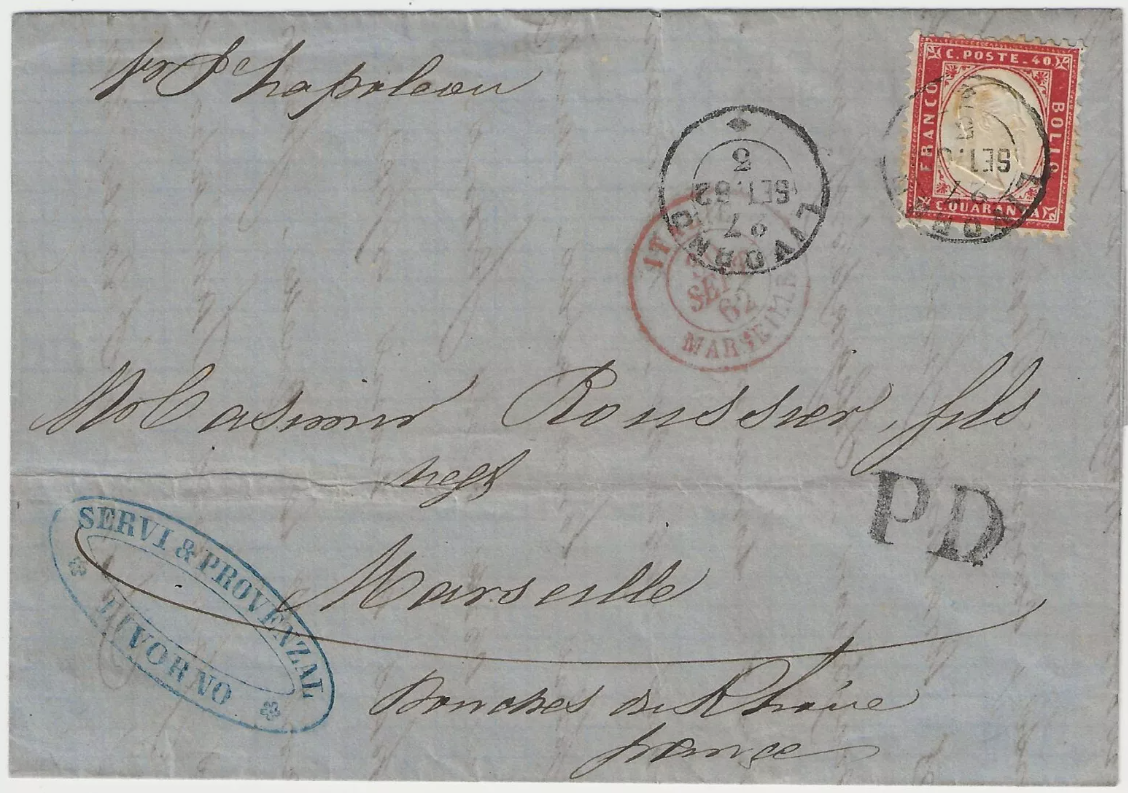 C. POSTE. 40
FRANCO
BOLLO
QUARANTA
LIVORNO
SET. 62
5
ITALIE
SEPT
62
MARSEILLE
Casimir Roussier, fils
negt
PD
Marseille
SERVI & PROVENZAL
LIVORNO
Bouches du Rhône
france